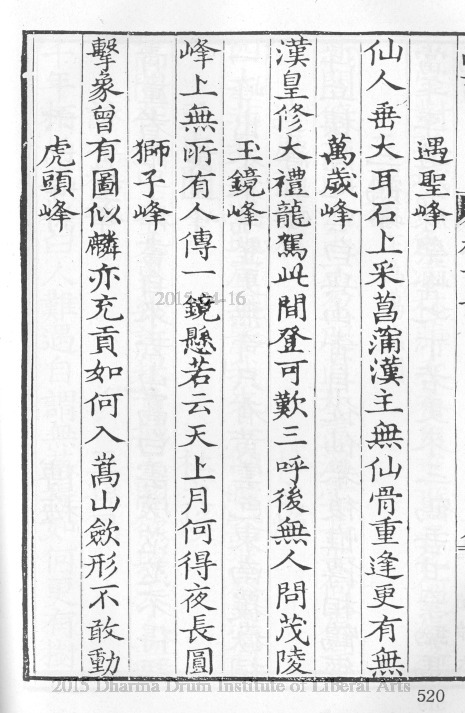 遇聖峰
仙人垂大耳石上采菖蒲漢主無仙骨重逢更有無
萬歲峰
漢皇修大禮龍駕此間登可歎三呼後無人問茂陵
玉鏡峰
峰上無所有人傳一鏡懸若云天上月何得夜長圓
獅子峰
擊象曾有圖似麟亦充貢如何入嵩山歛形不敢動
虎頭峰
2015-04-16
2015 Dharma Drum Institute of Liberal Arts
520